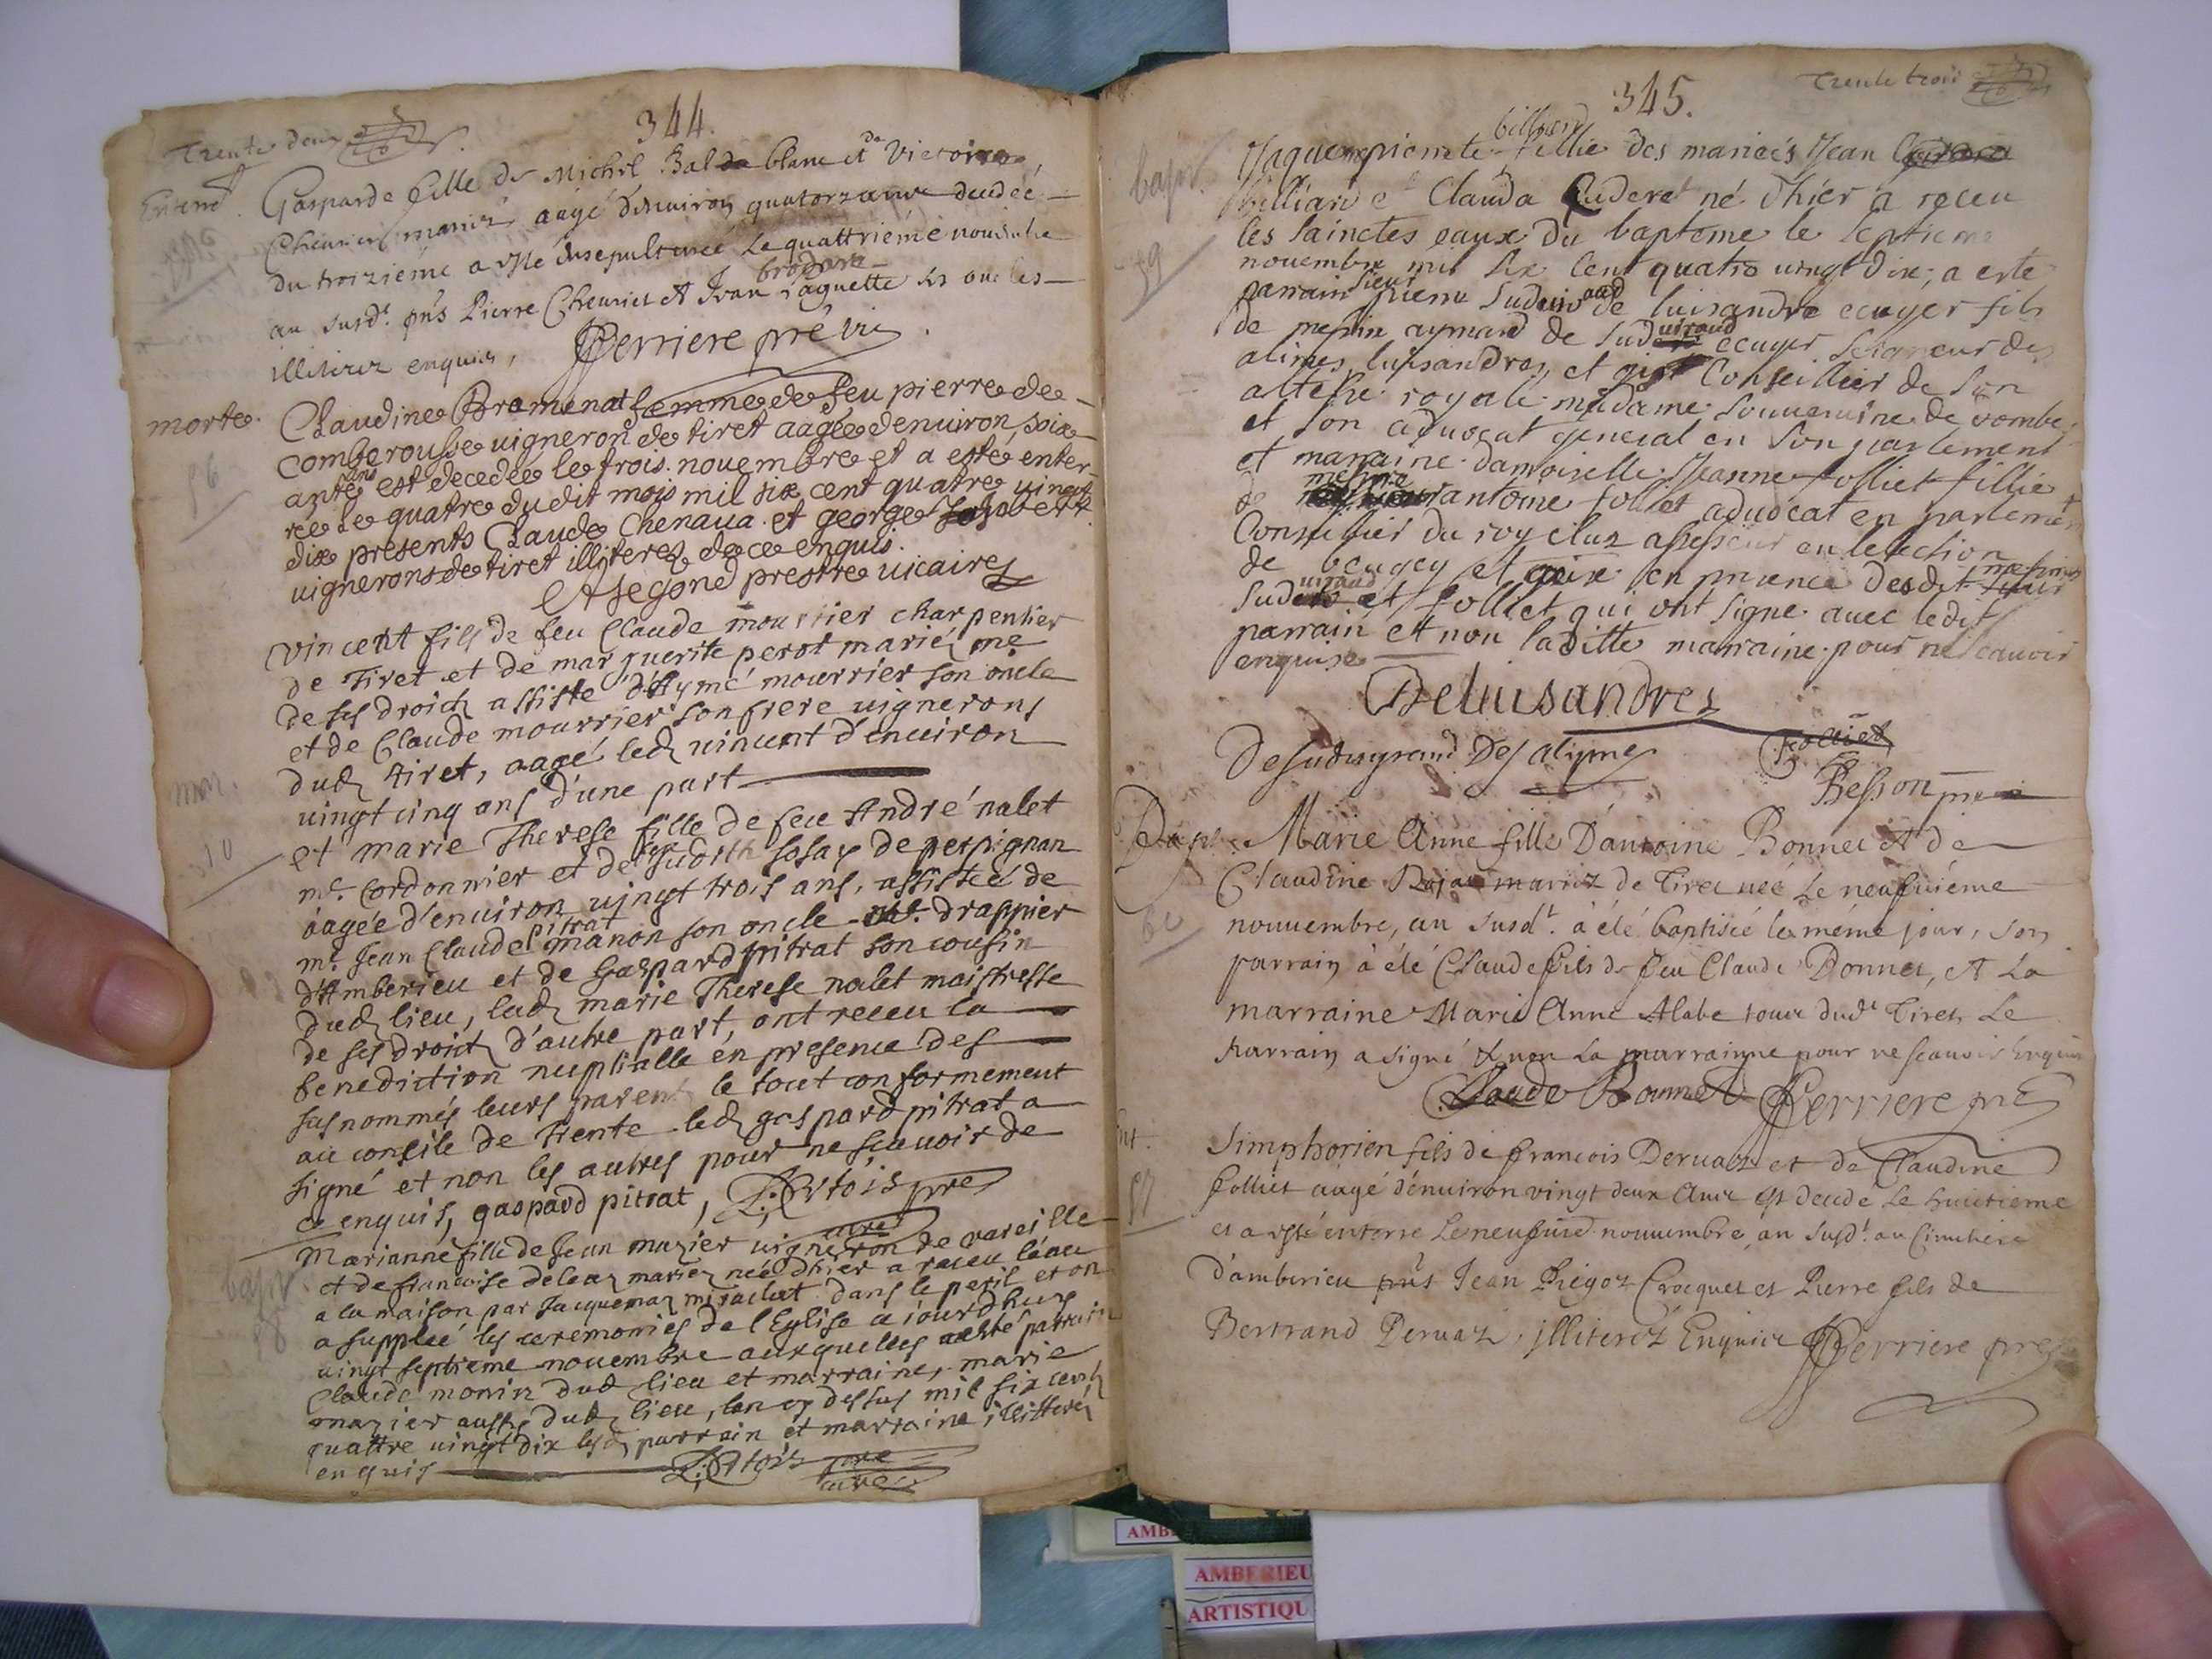 trente deux
344.
Enterrt.
Gasparde fille de Michel Bal blanc et de Victoire
Cheurier mariés aagé d'enuiron quatorz ans decedeé
du troizième a esté ensepultureé le quattriéme nouembre
au susdt. pñs Pierre Cheurier et Jean raguette les
illiterez enquis, fferriere pre vic
morte.
56
Claudine Bramenat femme de feu pierre de
comberousse uigneron de tiret aageé denuiron soix
ante ans est decedeé le trois nouembre et a esté enter-
reé le quatre dudit mois mil six cent quatre uingt
dix presents Claude Chenaua et george
uignerons de tiret illiterez de ce enquis.
Segond prestre uicaire
mar.
10
vincent fils de feu Claude mourrier charpentier
de Tiret et de marguerite perot mariez me
de ses droictz assisté d'Aymé mourrier son oncle
et de Claude mourrier son frere uignerons
dudz tiret, aagé ledz uincent d'enuiron
uingt cinq ans d'une part
et marie Therese fille de feu André nalet
me. cordonnier et de feue Judith sosay de perpignan
aagée d'enuiron uingt trois ans, assistée de
me. Jean Claude pitrat manon son oncle drappier
d'Amberieu et de Gaspard pitrat son cousin
dudz lieu, ladz marie Therese nalet maistresse
de ses droictz d'autre part, ont receu la
benediction nuptialle en presence des
susnommés leurs parents le tout conformement
au concile de Trente ledz gaspard pitrat a
signé et non les autres pour ne scauoir de
ce enquis, gaspard pitrat, pre
curé
bapt.
58
Marianne fille de Jean mazier uigneron de vareille
et de francoise mariez née d'hier a receu l'eau
a la maison par Jacquemaz miraclet dans le peril et on
a suppleé les ceremonies de l'Eglise ce iourdhuy
uingt septieme nouembre auxquelles a esté parrain
Claude monin dudz lieu et marraine, marie
mazier aussy dudz lieu, lan cy dessus mil six cents
quattre uingt dix lesdz parrain et marraine illitteréz
enquis pre
curé
trente trois
345.
bapt.
59
billiand
Jaquemepierrete fillie des mariés Jean
billiand et Clauda Cuderet né d'hier a receu
les sainctes eaux du bapteme le septieme
nouembre mil six cent quatre uingt dix, a esté
parrain sieur pierre de luisandre ecuyer fils
de messire aymard de ecuyer seigneur des
alimes, luysandres, et gist Conseillier de son
altesse royale madame souueraine de dombe
et son aduocat general en son parlement
et marraine damoiselle Jeanne folliet fillie
de messire antoine folliet aduocat en parlement
Conseillier du roy elus assesseur en lelection
de beugey et en presence desdit
et folliet qui ont signe auec ledit
parrain et non laditte marraine pour ne scauoir
enquise
Deluisandres
Des alymes folliet
Besson pre
Bapt.
60
Marie Anne fille D'antoine Bonnet et de
Claudine mariez de Tiret neé le neufuiéme
nouuembre, an susdt. à élé baptiseé le méme jour, son
parrain à élé Claude fils de feu Claude Bonnet, et la
marraine Marie Anne Alabe dudt Tiret, Le
parrain a signé & non la marrainne pour ne scauoir Enquis
Claude Bonnet fferriere pre
57
Simphorien fils de francois Deruaz et de Claudine
folliet aagé d'enuiron vingt deux Ans est decedé le huictieme
et a esté enterré le neufuié nouuembre, an susdt. au Cimetiere
d'amberieu pñs Jean Crocquet et Pierre fils de
Bertrand Deruaz, illiterez Enquis fferriere pre
AMBERIEU
ARTISTIQU